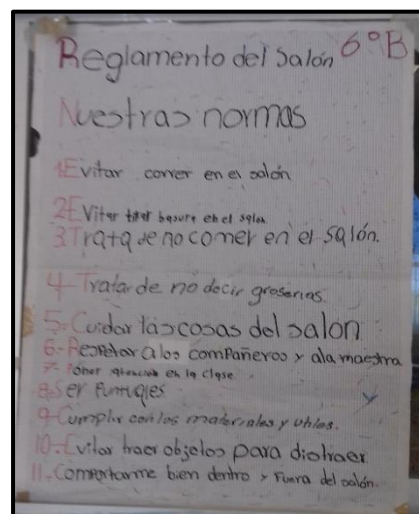 Reglamento del Salón 6°B
Nuestras normas
1 Evitar correr en el salón
2 Evitar tirar basura en el salon
3. Trata de no comer en el salón.
4- Tratar de no decir groserias.
5- Cuidar las cosas del salon
6- Respetar a los compañeros y ala maestra
7- Poner atencion en la clase
8. Ser Puntuales
9- Cumplir con los materiales y utiles.
10- Evitar traer objetos para distraer
11. Comportarme bien dentro y fuera del salón.